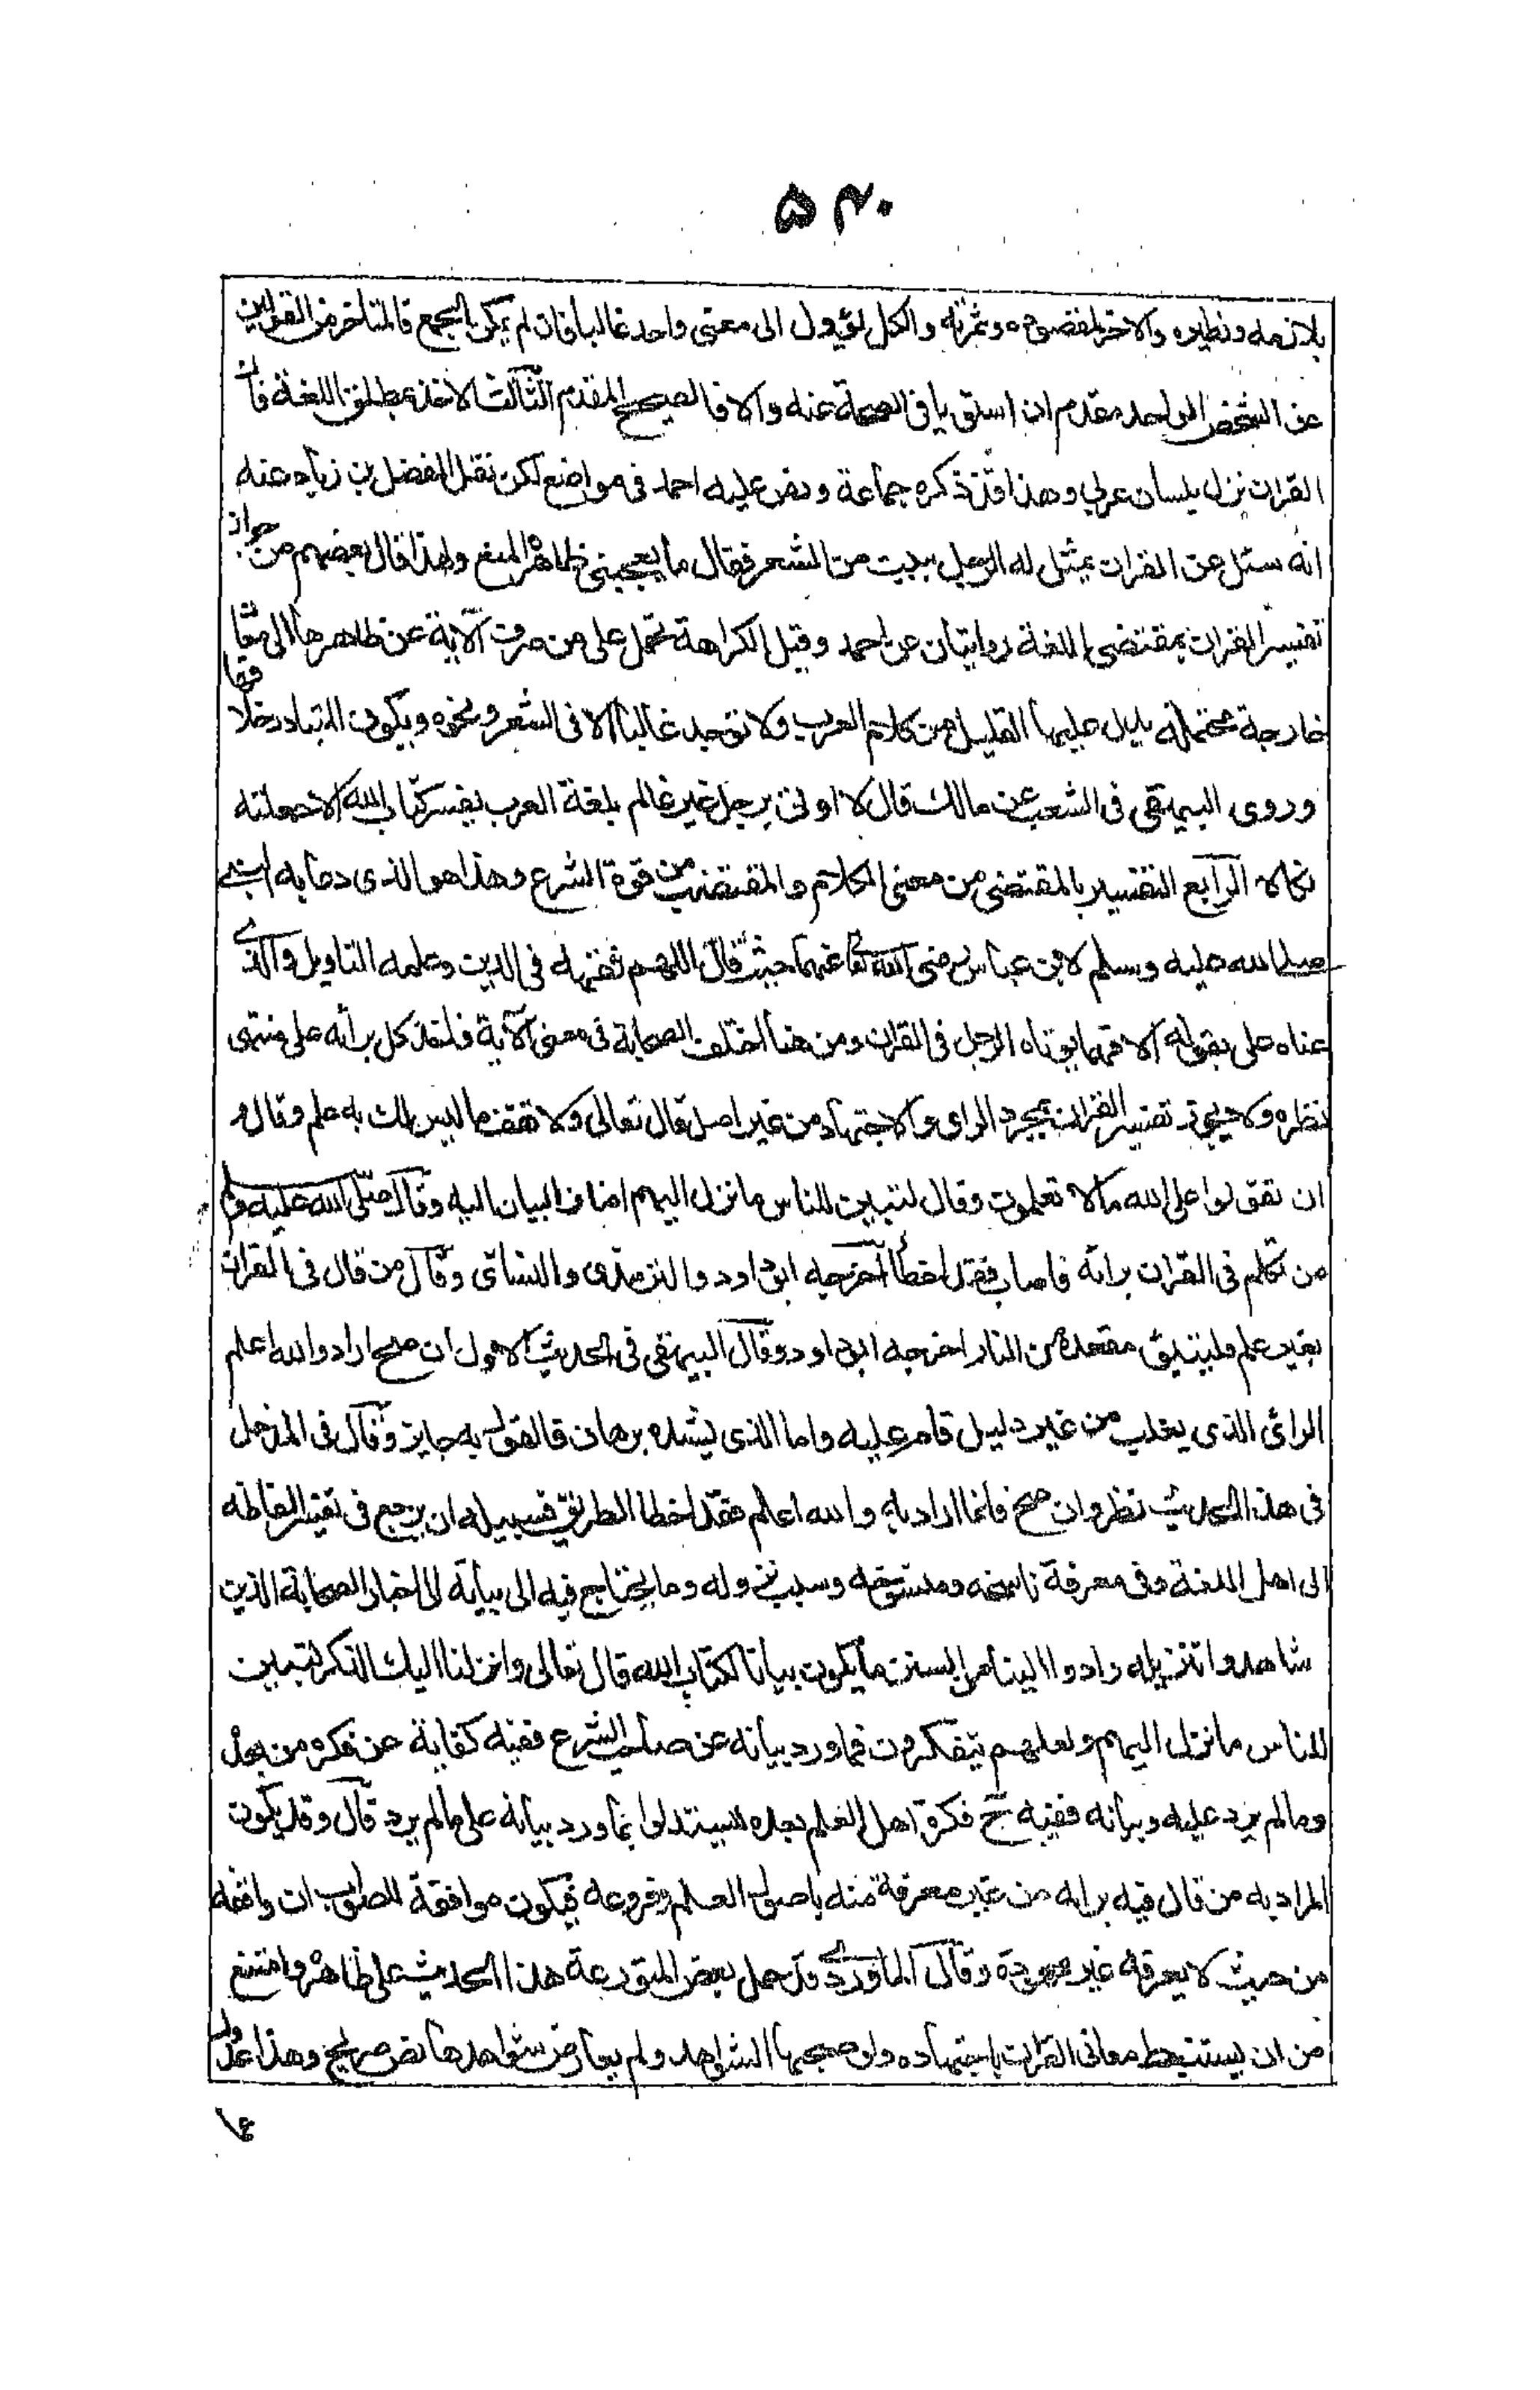 ۵۴۰
بلازمه ونظيره والاخر لمقصوده وثمرته والكل يؤول الى معنى واحد غالبا فان لم يمكن الجمع فالمتأخر من القولين
عن الشخص الواحد مقدم ان استويا فى الصحة عنه والا فالصحيح المقدم الثالث الاخذ بمطلق اللغة فان
القران نزل بلسان عربي وهذا قد ذكره جماعة ونص عليه احمد فى مواضع لكن نقل الفضل بن زياد عنه
انه سئل عن القران يمثل له الرجل ببيت من الشعر فقال ما يعجبنى ظاهره المنع ولهذا قال بعضهم من جواز
تفسير القران بمقتضى اللغة روايتان عن احمد وقيل الكراهة تحمل على من صرف الآية عن ظاهرها الى معان
خارجة محتملة يدل عليها القليل من كلام العرب ولا توجد غالبا الا فى الشعر ونحوه ويكون المتبادر خلافها
وروى البيهقى فى الشعب عن مالك قال لا اوتى برجل غير عالم بلغة العرب يفسر كتاب الله الا جعلته
نكالا الرابع التفسير بالمقتضى من معنى الكلام والمقتضب من قوة الشرع وهذا هو الذى دعا به النبي
صلى الله عليه وسلم لابن عباس رضى الله تعا عنهما حيث قال اللهم فقهه فى الدين وعلمه التاويل والذى
عناه على بقوله الا فهما يوتاه الرجل فى القران ومن هنا اختلف الصحابة فى معنى الآية فاخذ كل برأيه على منتهى
نظره ولا يجوز تفسير القران بمجرد الراى والاجتهاد من غير اصل قال تعالى ولا تقف ما ليس لك به علم وقال و
ان تقولوا على الله ما لا تعلمون وقال لتبين للناس ما نزل اليهم اضاف البيان اليه وقال صلى الله عليه وسلم
من تكلم فى القران برايه فاصاب فقد اخطأ اخرجه ابو داود والترمذى والنسائى وقال من قال فى القران
بغير علم فليتبوء مقعده من النار اخرجه ابو داود وقال البيهقى فى الحديث الاول ان صح اراد والله اعلم
الرائ الذى يغلب من غير دليل قام عليه واما الذى يشده برهان فالقول به جايز وقال فى المدخل
فى هذا الحديث نظر وان صح فانما اراد به والله اعلم فقد اخطا الطريق فسبيله ان يرجع فى تفسير الفاظه
الى اهل اللغة وفى معرفة ناسخه ومنسوخه وسبب نزوله وما يحتاج فيه الى بيانه الى اخبار الصحابة الذين
شاهدوا تنزيله وادوا الينا من السنن ما يكون بيانا لكتاب الله قال تعالى وانزلنا اليك الذكر لتبين
للناس ما نزل اليهم ولعلهم يتفكرون فما ورد بيانه عن صاحب الشرع ففيه كفاية عن فكره من بعده
وما لم يرد عليه وبيانه ففيه ح فكرة اهل العلم بعده ليستدلوا بما ورد بيانه على ما لم يرد قال وقد يكون
المراد به من قال فيه برايه من غير معرفة منه باصول العلم وفروعه فيكون موافقة للصواب ان وافقه
من حيث لا يعرفه غير محمودة وقال الماوردى قد حمل بعض المتورعة هذا الحديث على ظاهره وامتنع
من ان يستنبط معانى القران باجتهاده ولو صحبها الشواهد ولم يعارض شواهدها نص صريح وهذا عدول